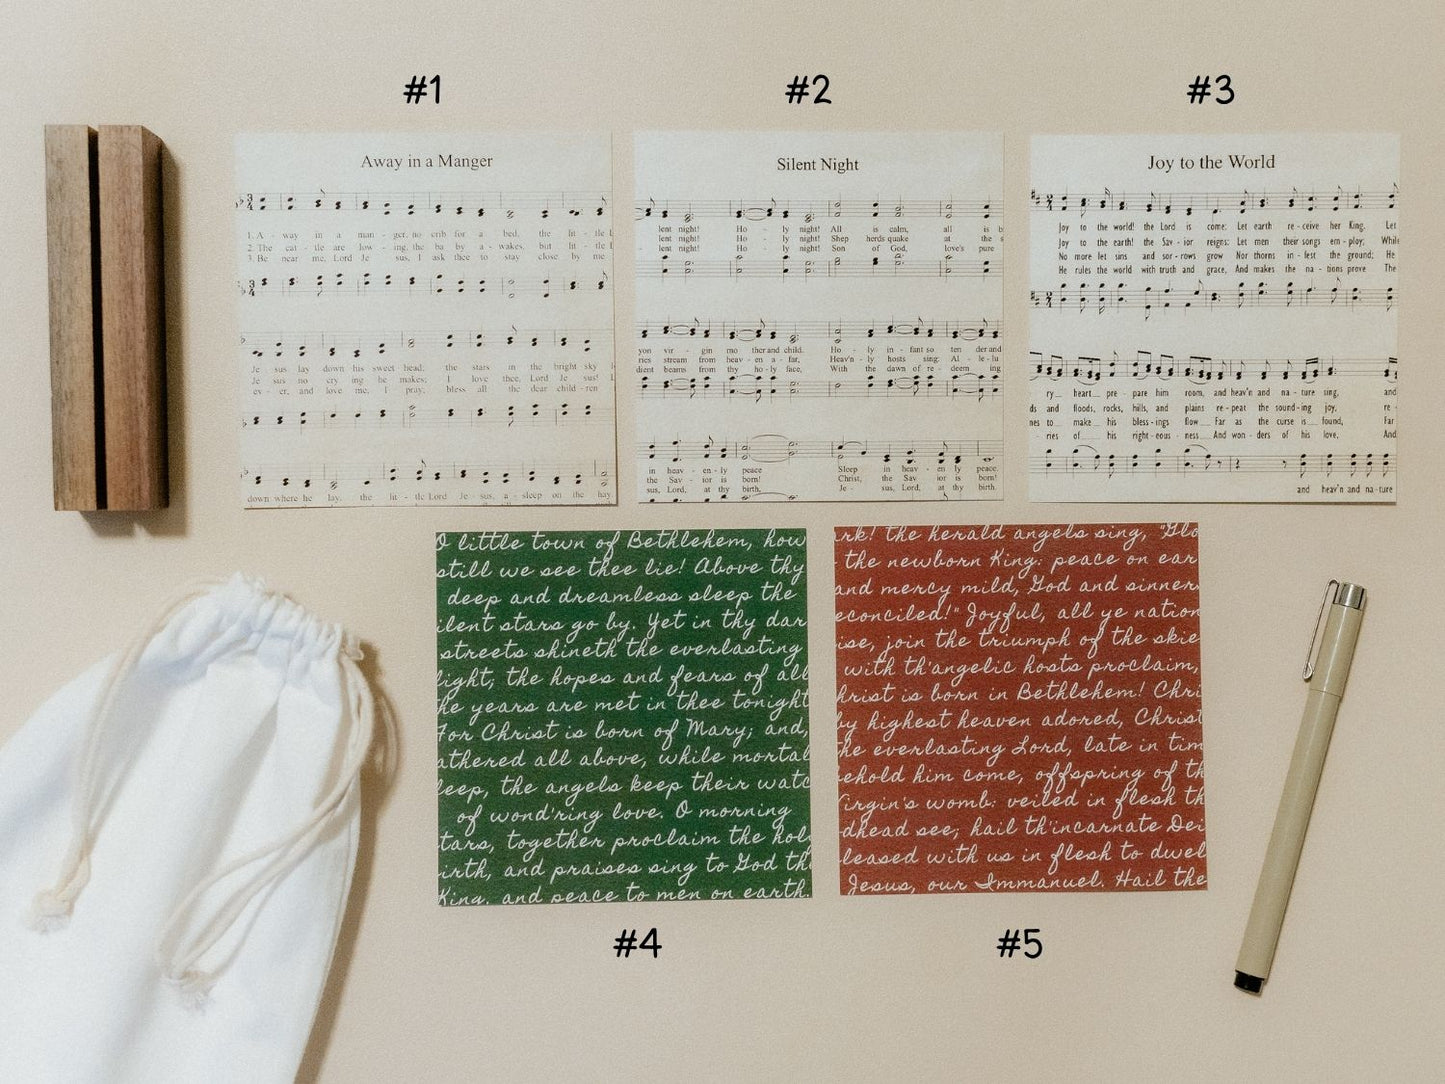 #1
#2
#3
Away in a Manger
1. A - way in a man - ger, no crib for a bed, the lit - tle
2. The cat - tle are low - ing, the ba by a - wakes, but lit - tle
3. Be near me, Lord Je sus, I ask thee to stay close by me
Je sus lay down his sweet head; the stars in the bright sky
Je sus no cry ing he makes; I love thee, Lord Je sus!
ev - er, and love me, I pray; bless all the dear child - ren
down where he lay, the lit - tle Lord Je - sus, a - sleep on the hay
Silent Night
lent night! Ho - ly night! All is calm, all is
lent night! Ho - ly night! Shep herds quake at the s
lent night! Ho - ly night! Son of God, love's pure
yon vir - gin mo ther and child. Ho - ly in - fant so ten der and
ries stream from heav - en a - far, Heav'n - ly hosts sing: Al - le - lu
dient beams from thy ho - ly face, With the dawn of re - deem ing
in heav - en - ly peace Sleep in heav - en ly peace.
the Sav - ior is born! Christ, the Sav ior is born!
sus, Lord, at thy birth, Je - sus, Lord, at thy birth.
Joy to the World
Joy to the world! the Lord is come: Let earth re - ceive her King. Let
Joy to the earth! the Sav - ior reigns: Let men their songs em - ploy; While
No more let sins and sor - rows grow Nor thorns in - fest the ground; He
He rules the world with truth and grace, And makes the na - tions prove The
ry heart pre - pare him room, and heav'n and na - ture sing, and
ds and floods, rocks, hills, and plains re - peat the sound - ing joy, re -
nes to make his bless - ings flow Far as the curse is found, Far
- ries of his right - eous - ness And won - ders of his love, And
and heav'n and na - ture
O little town of Bethlehem, how
still we see thee lie! Above thy
deep and dreamless sleep the
ilent stars go by. Yet in thy dar
streets shineth the everlasting
light, the hopes and fears of all
he years are met in thee tonight
For Christ is born of Mary; and,
athered all above, while mortal
leep, the angels keep their watc
of wond'ring love. O morning
tars, together proclaim the hol
irth, and praises sing to God th
King, and peace to men on earth.
ark! the herald angels sing, "Glo
the newborn King: peace on ear
and mercy mild, God and sinner
econciled!" Joyful, all ye nation
ise, join the triumph of the skie
with th'angelic hosts proclaim,
hrist is born in Bethlehem! Chri
by highest heaven adored, Christ
the everlasting Lord, late in tim
ehold him come, offspring of th
Virgin's womb: veiled in flesh th
dhead see; hail th'incarnate Dei
leased with us in flesh to dwel
Jesus, our Immanuel. Hail the
#4
#5